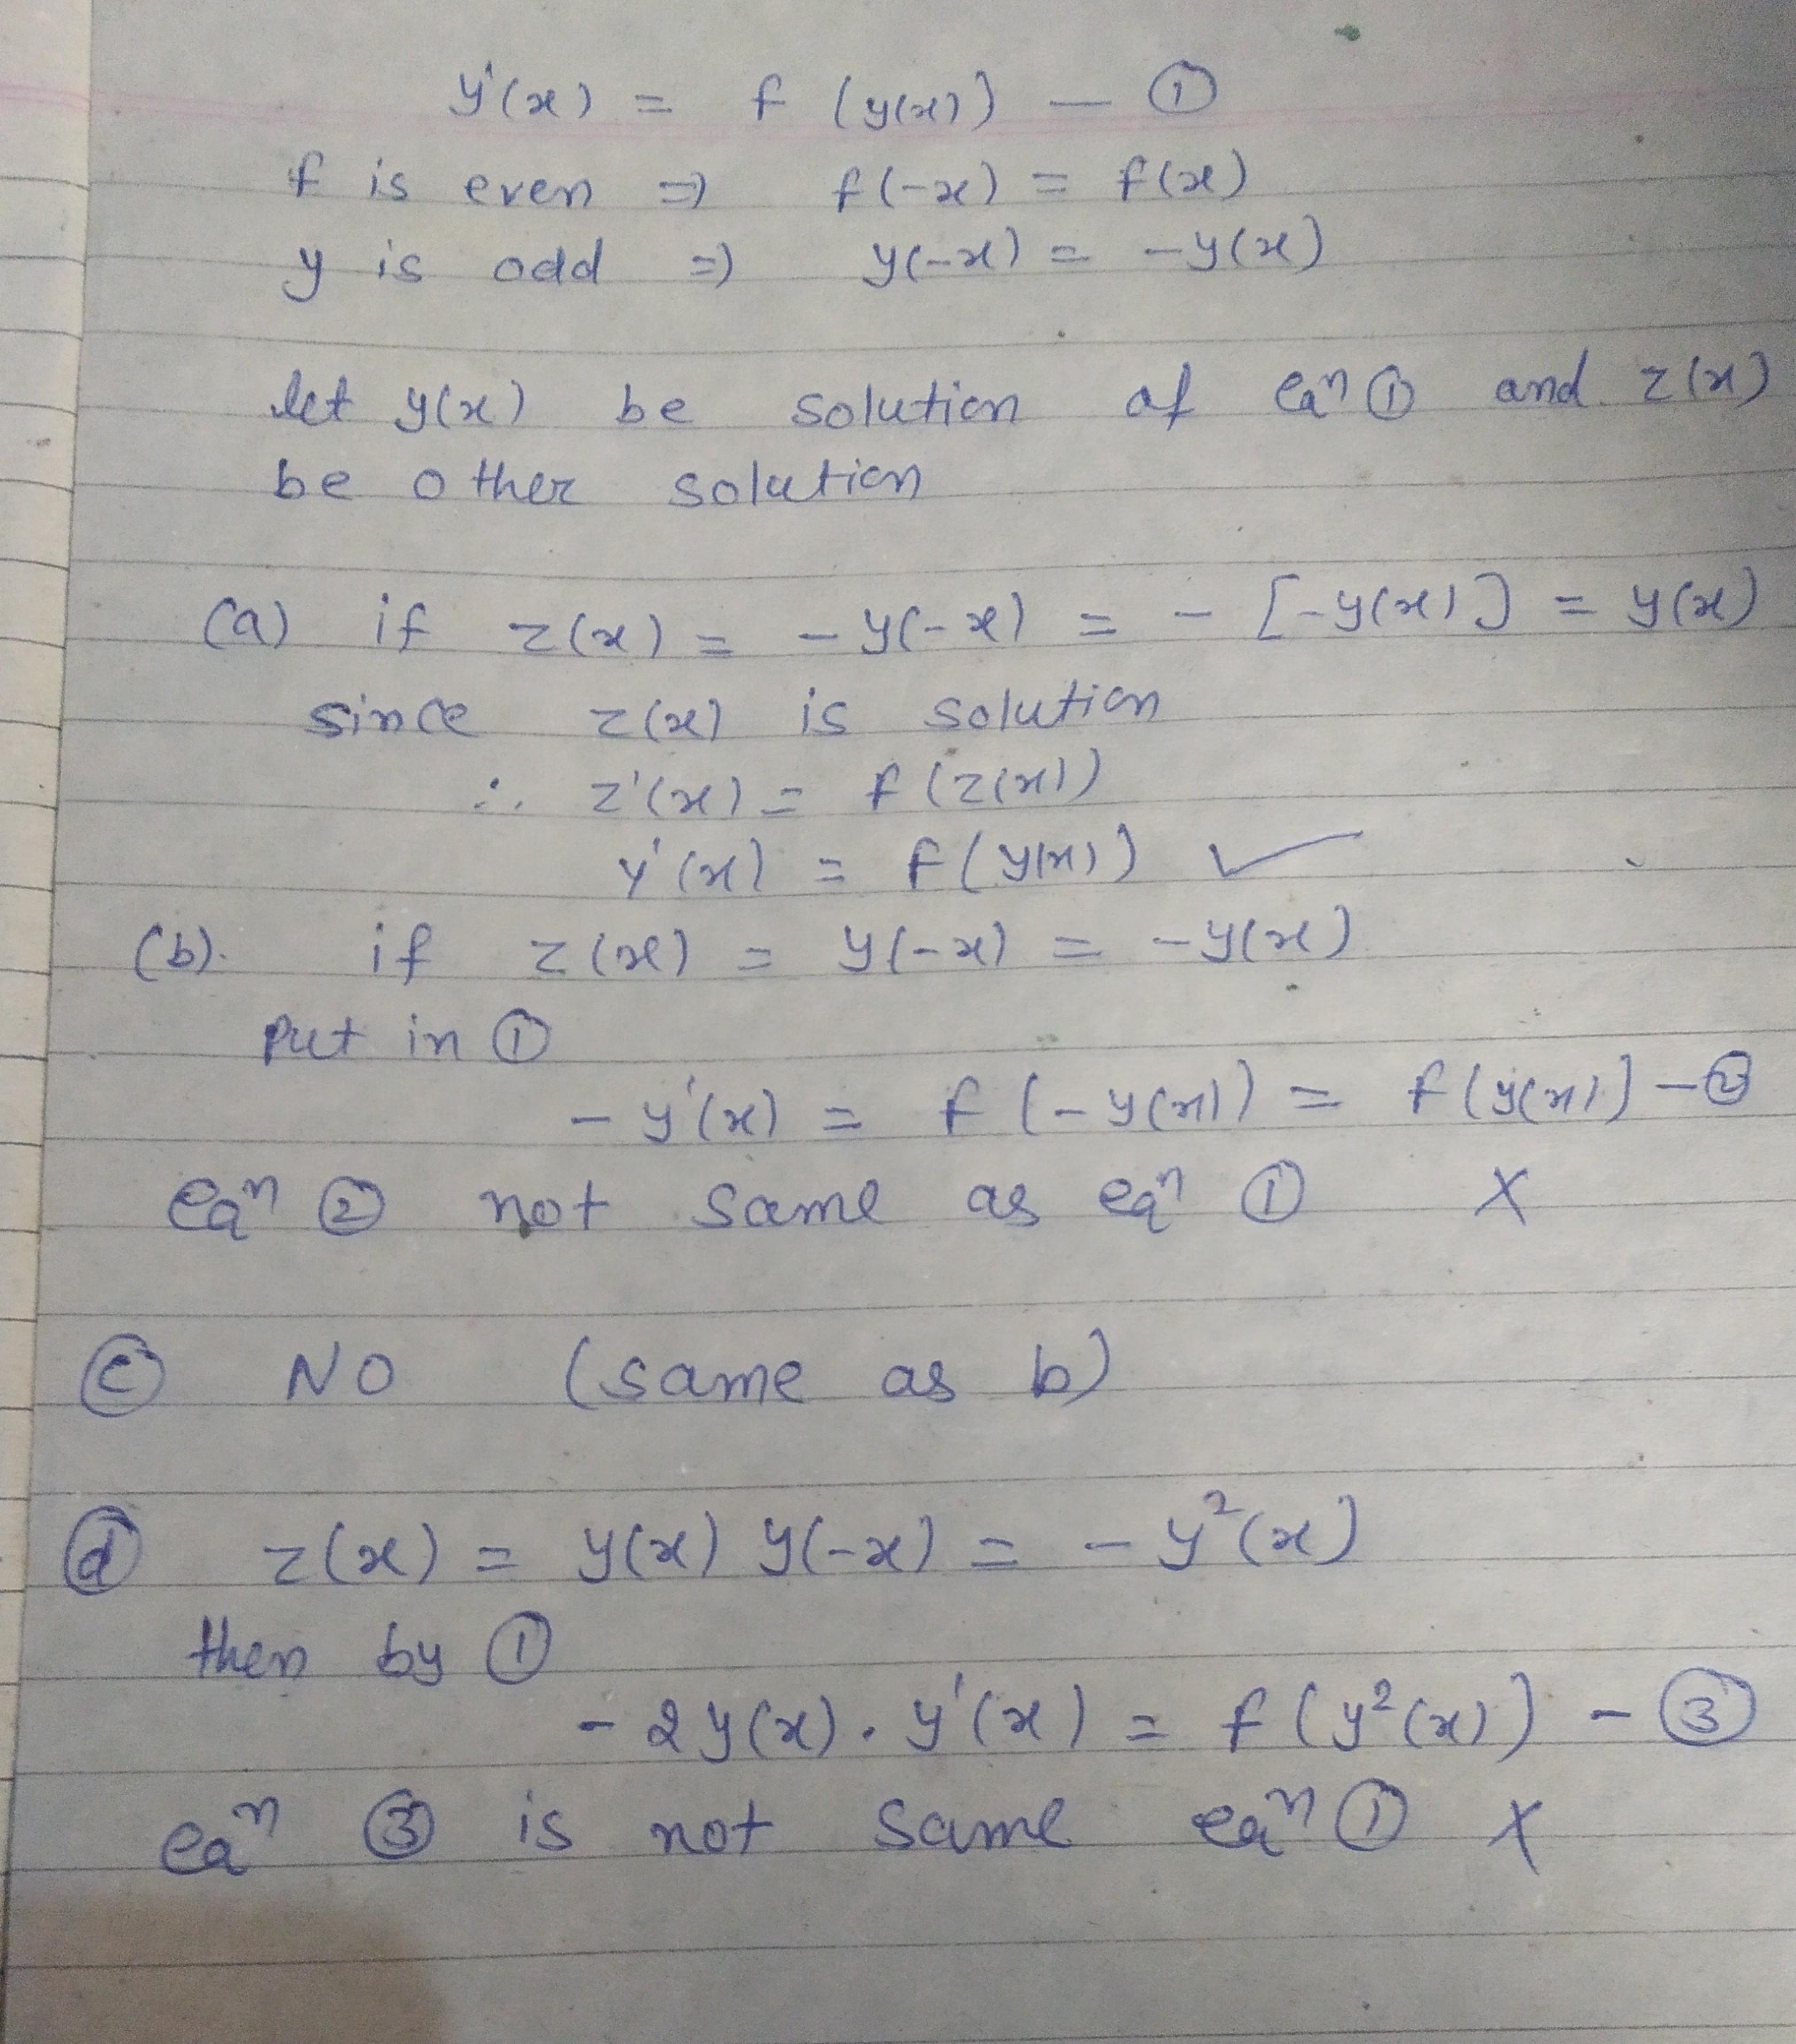 y'(x) = f (y(x)) — ①
f is even ⇒ f(-x) = f(x)
y is odd ⇒ y(-x) = -y(x)
let y(x) be solution of eqⁿ ① and z(x)
be other solution
(a) if z(x) = - y(-x) = - [-y(x)] = y(x)
since z(x) is solution
∴ z'(x) = f (z(x))
y'(x) = f(y(x)) ✓
(b). if z(x) = y(-x) = -y(x)
Put in ①
- y'(x) = f (-y(x)) = f(y(x)) - ②
eqⁿ ② not same as eqⁿ ① X
ⓒ NO (same as b)
ⓓ z(x) = y(x) y(-x) = - y²(x)
then by ①
- 2y(x). y'(x) = f (y²(x)) - ③
eqⁿ ③ is not same eqⁿ ① X